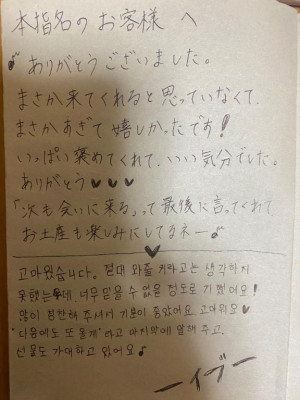 本指名のお客様へ
♪ありがとうございました。
まさか来てくれると思っていなくて、
まさかすぎて嬉しかったです!
いっぱい褒めてくれて、いい気分でした。
ありがとう♥♥♥
「次も会いに来る」って最後に言ってくれて
お土産も楽しみにしてるネー♪
♥
고마웠습니다. 절대 와줄 거라고는 생각하지
못했는데, 너무 믿을 수 없을 정도로 기뻤어요!
많이 칭찬해 주셔서 기분이 좋았어요. 고마워요♥
'다음에도 또 올게'라고 마지막에 말해 주고.
선물도 기대하고 있어요♪
ーイブー